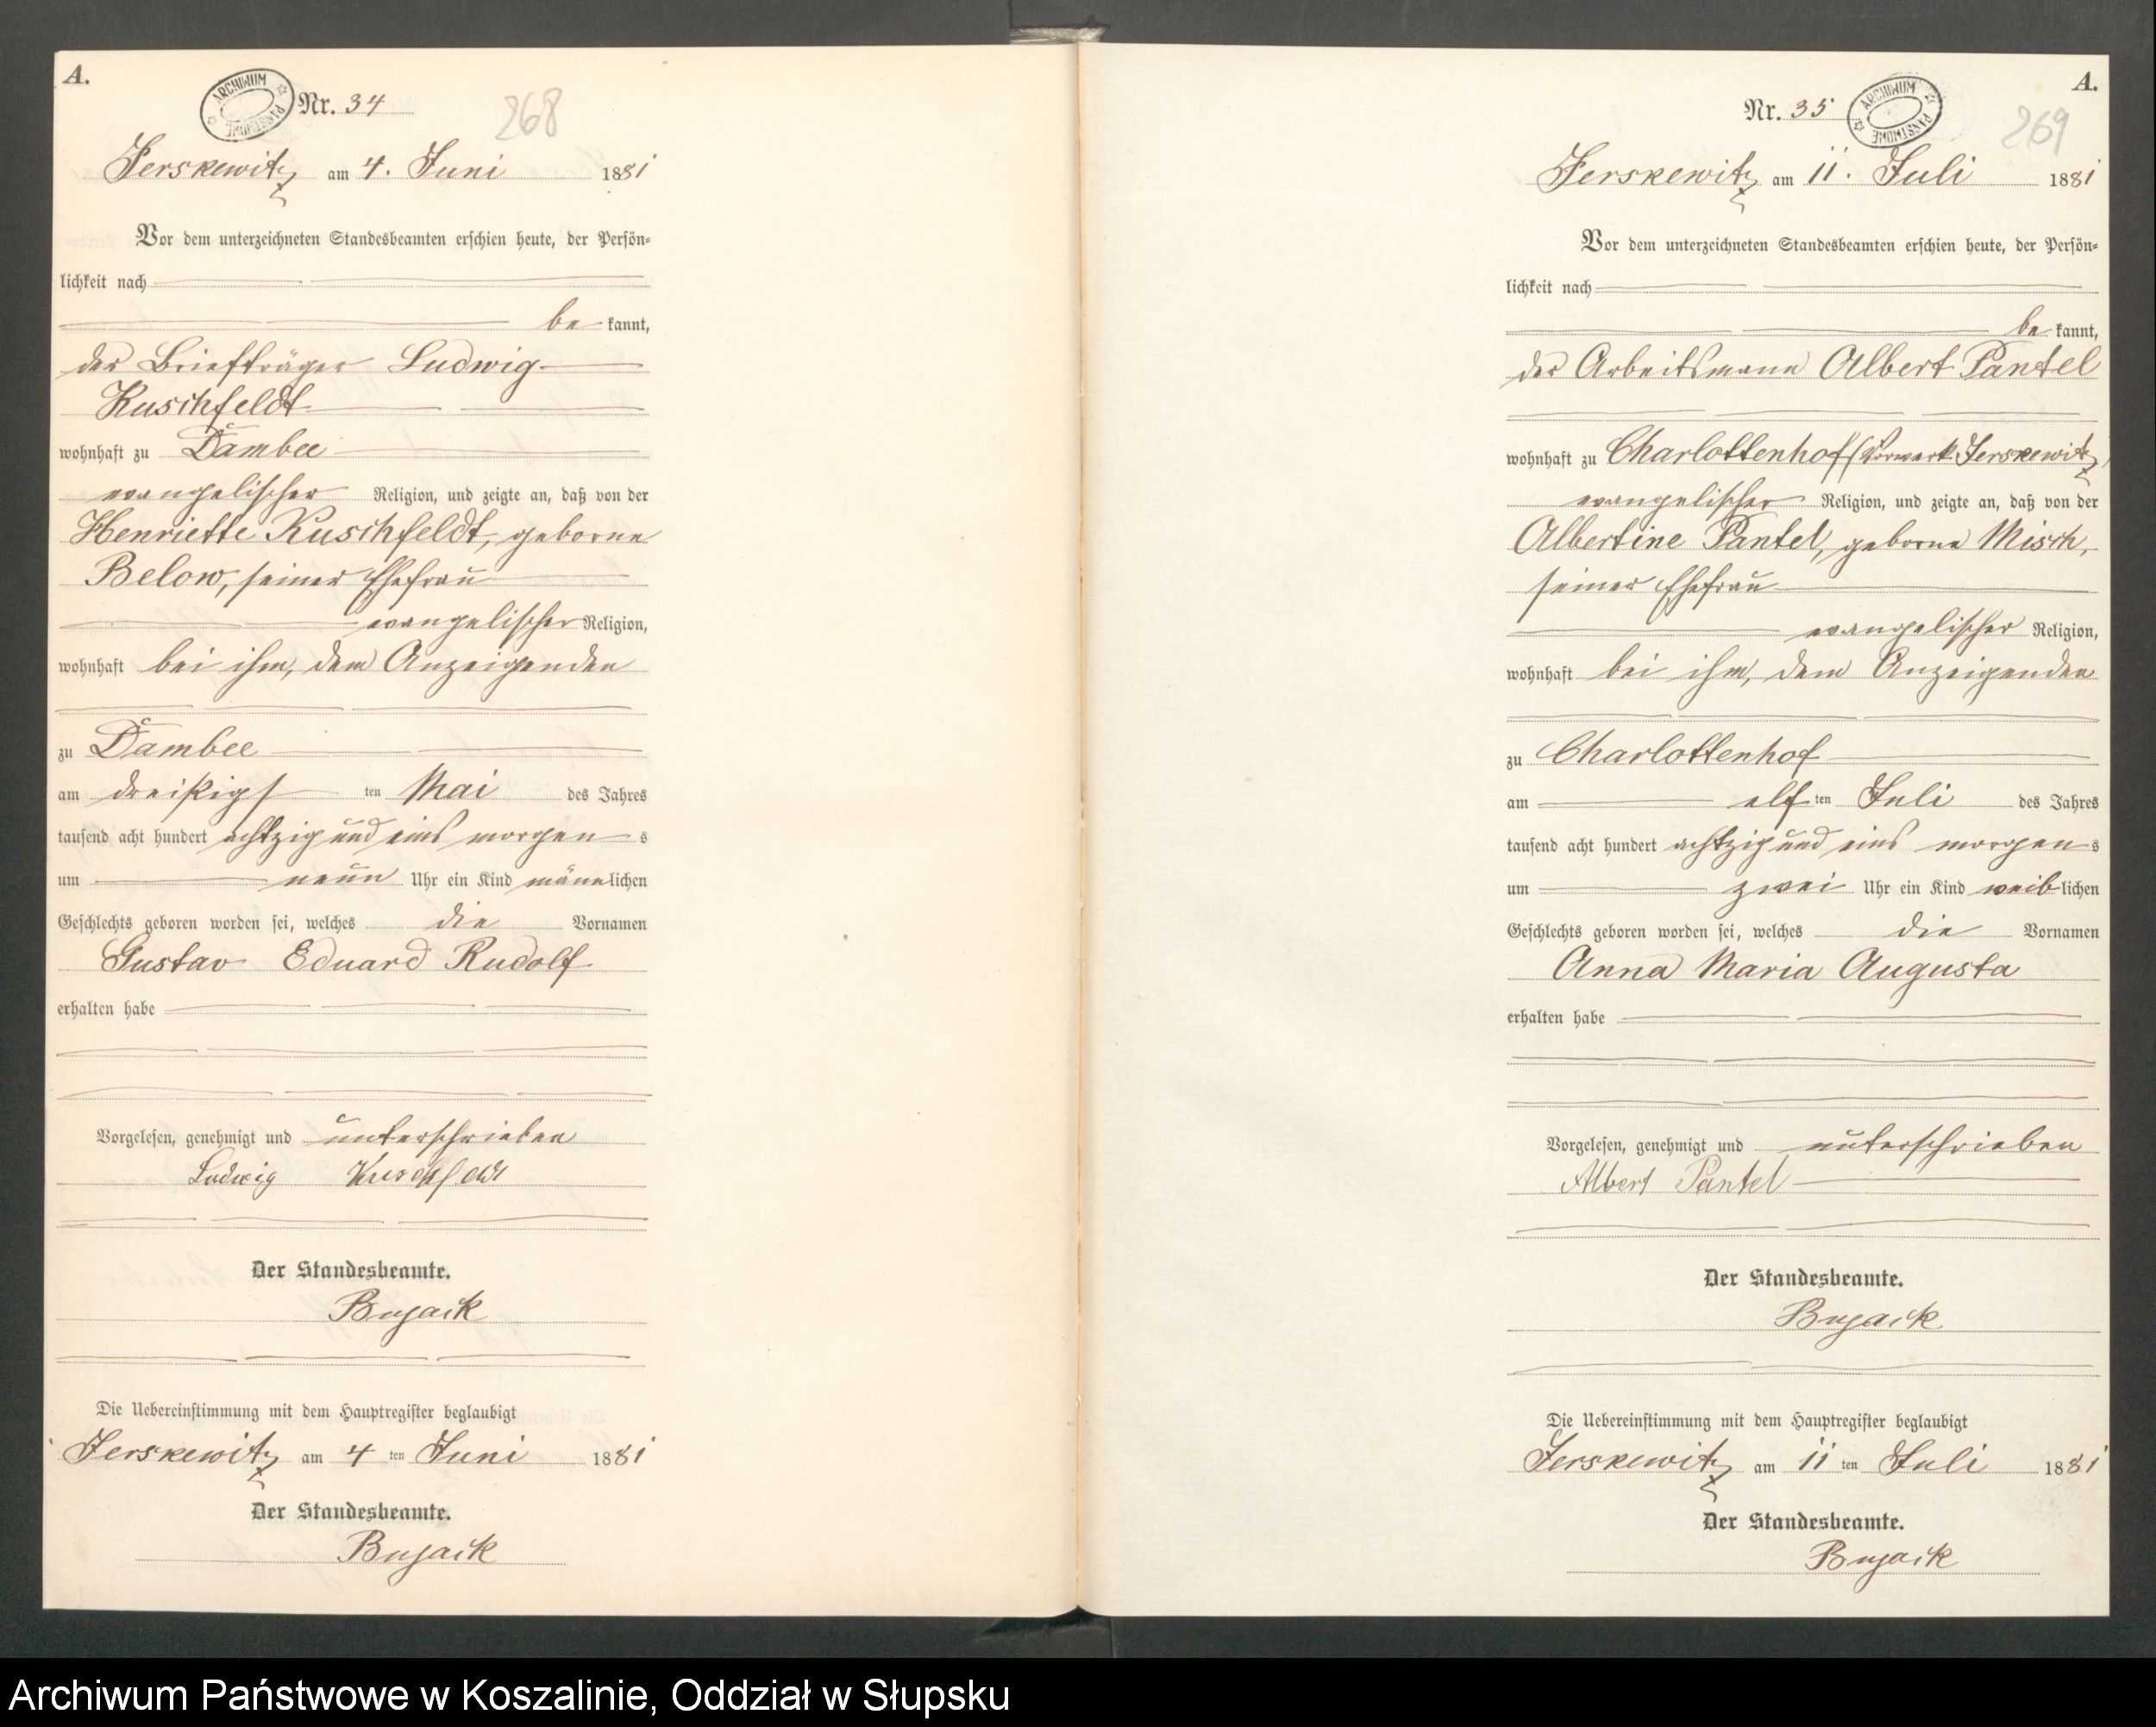 A.
ARCHIWUM PAŃSTWOWE
Nr. 34
268
Jerskewitz am 4. Juni 1881
Vor dem unterzeichneten Standesbeamten erschien heute, der Persön-
lichkeit nach
be kannt,
der Briefträger Ludwig
Kuschfeldt
wohnhaft zu Dambee
evangelischer Religion, und zeigte an, daß von der
Henriette Kuschfeldt, geborne
Below, seiner Ehefrau
evangelischer Religion,
wohnhaft bei ihm, dem Anzeigenden
zu Dambee
am dreißigs ten Mai des Jahres
tausend acht hundert achtzig und eins morgen s
um neun Uhr ein Kind männlichen
Geschlechts geboren worden sei, welches die Vornamen
Gustav Eduard Rudolf
erhalten habe
Vorgelesen, genehmigt und unterschrieben
Ludwig Kuschfeldt
Der Standesbeamte.
Bujack
Die Uebereinstimmung mit dem Hauptregister beglaubigt
Jerskewitz am 4 ten Juni 1881
Der Standesbeamte.
Bujack
A.
Nr. 35
ARCHIWUM PAŃSTWOWE
269
Jerskewitz am 11. Juli 1881
Vor dem unterzeichneten Standesbeamten erschien heute, der Persön-
lichkeit nach
be kannt,
der Arbeitsmann Albert Pantel
wohnhaft zu Charlottenhof (Vorwerk Jerskewitz)
evangelischer Religion, und zeigte an, daß von der
Albertine Pantel, geborne Misch,
seiner Ehefrau
evangelischer Religion,
wohnhaft bei ihm, dem Anzeigenden
zu Charlottenhof
am elf ten Juli des Jahres
tausend acht hundert achtzig und eins morgen s
um zwei Uhr ein Kind weiblichen
Geschlechts geboren worden sei, welches die Vornamen
Anna Maria Augusta
erhalten habe
Vorgelesen, genehmigt und unterschrieben
Albert Pantel
Der Standesbeamte.
Bujack
Die Uebereinstimmung mit dem Hauptregister beglaubigt
Jerskewitz am 11 ten Juli 1881
Der Standesbeamte.
Bujack
Archiwum Państwowe w Koszalinie, Oddział w Słupsku